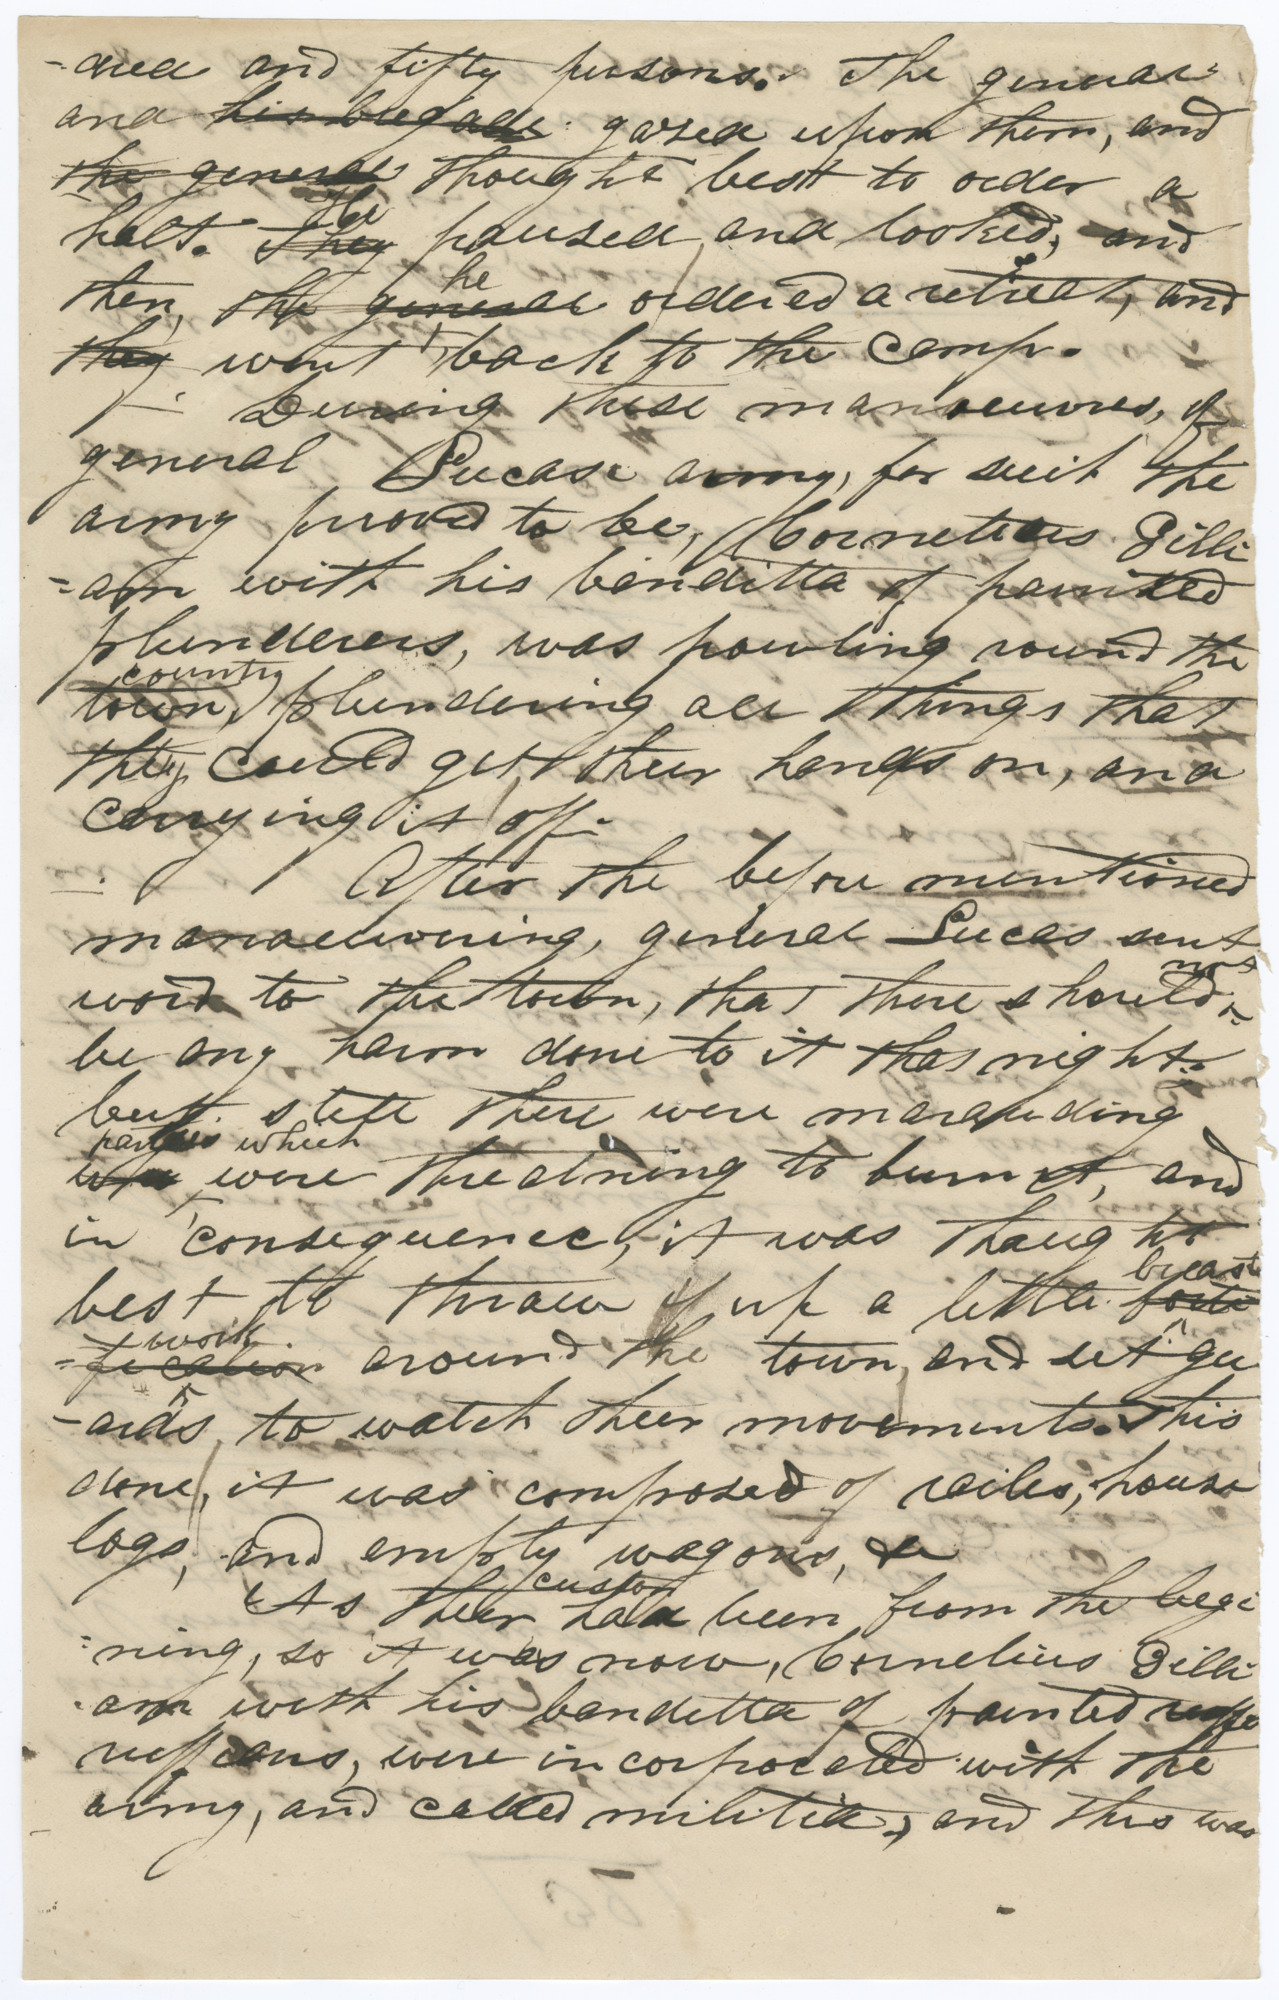 -dred and fifty persons. The general
and his brigade gazed upon them, and
the general thought best to order a
halt. They He paused, and looked, and
then, the general he ordered a retreat, and
they went back to the camp.
During these manoeuvres, of
general Lucase army, for such the
army proved to be, Cornelious Gilli
=am with his banditta of painted
plunderers, was powling round the
town, country plundering all things that
they could get their hands on, and
carrying it off.
After the before mentioned
manoeuvering, general Lucas sent
word to the town, that there should not
be any harm done to it that night.
but still there were marauding
parties which were threatning to burn it, and
in consequence, it was thought
best to thraw up a little forti breast
=fication work around the town, and set gu
-ards, to watch their movements. This
done, it was composed of railes, house
logs, and empty wagons, &c
As their custom had been from the begi
=ning, so it was now, Cornelius Gilli
-am with his banditta of painted ruffi
ruffians, were incorporated with the
army, and called militia, and this was